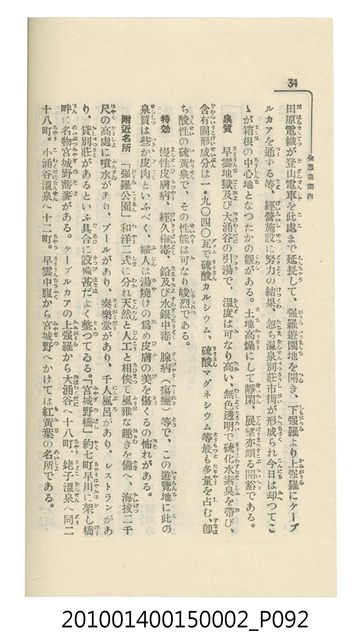 34
全國温泉案内
田原電鐵が登山電車を此處まで延長して、强羅遊園地を開き、下强羅より上强羅にケーブ
ルカアを通ずる等、經營施設に努力の結果、忽ち温泉別莊市街が形成られ今日は却つてこ
ゝが箱根の中心地となつたかの觀がある。土地高燥にして靜閑、展望亦頗る開豁である。
泉質 早雲地獄及び大涌谷の引湯で、溫度は可なり高い、無色透明で硫化水素臭を帶び、
含有固形成分は一・九〇四〇瓦で硫酸カルシウム、硫酸マグネシウム等最も多量を占む、卽
ち酸性の硫黄泉で、その性能は可なり峻烈である。
特効 慢性皮膚病、經久梅毒、鉛及び水銀中毒、腺病(瘰癧)等で、この遊覽地に此の
泉質は些か皮肉といふべく、婦人は湯燒けの爲め皮膚の美を傷くるの怖れがある。
附近名所 「强羅公園」和洋二式に分れ天然と人工と相俟つて風雅な趣きを備へ、海拔二千
尺の高處に噴水があり、プールがあり、奏樂堂があり、千人風呂があり、レストランがあ
り、貸別莊があるといふ具合に設備甚だよく整つてゐる。「宮城野橋」約七町早川に架し橋
畔に名物宮城野蕎麥がある。ケーブルカアの上强羅から大涌谷へ十八町、姥子温泉へ同二
十八町。小涌谷温泉へ十二町。早雲中腹から宮城野へかけては紅黃葉の名所である。
201001400150002_P092